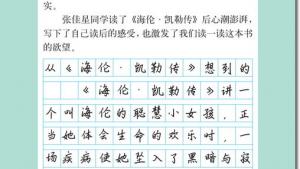 实。
张佳星同学读了《海伦·凯勒传》后心潮澎湃，
写下了自己读后的感受，也激发了我们读一读这本书
的欲望。
从《海伦·凯勒传》想到的
《海伦·凯勒传》讲一
个叫海伦的聪慧小女孩，正
当她体会生命的欢乐时，一
场疾病使她坠入了黑暗与寂